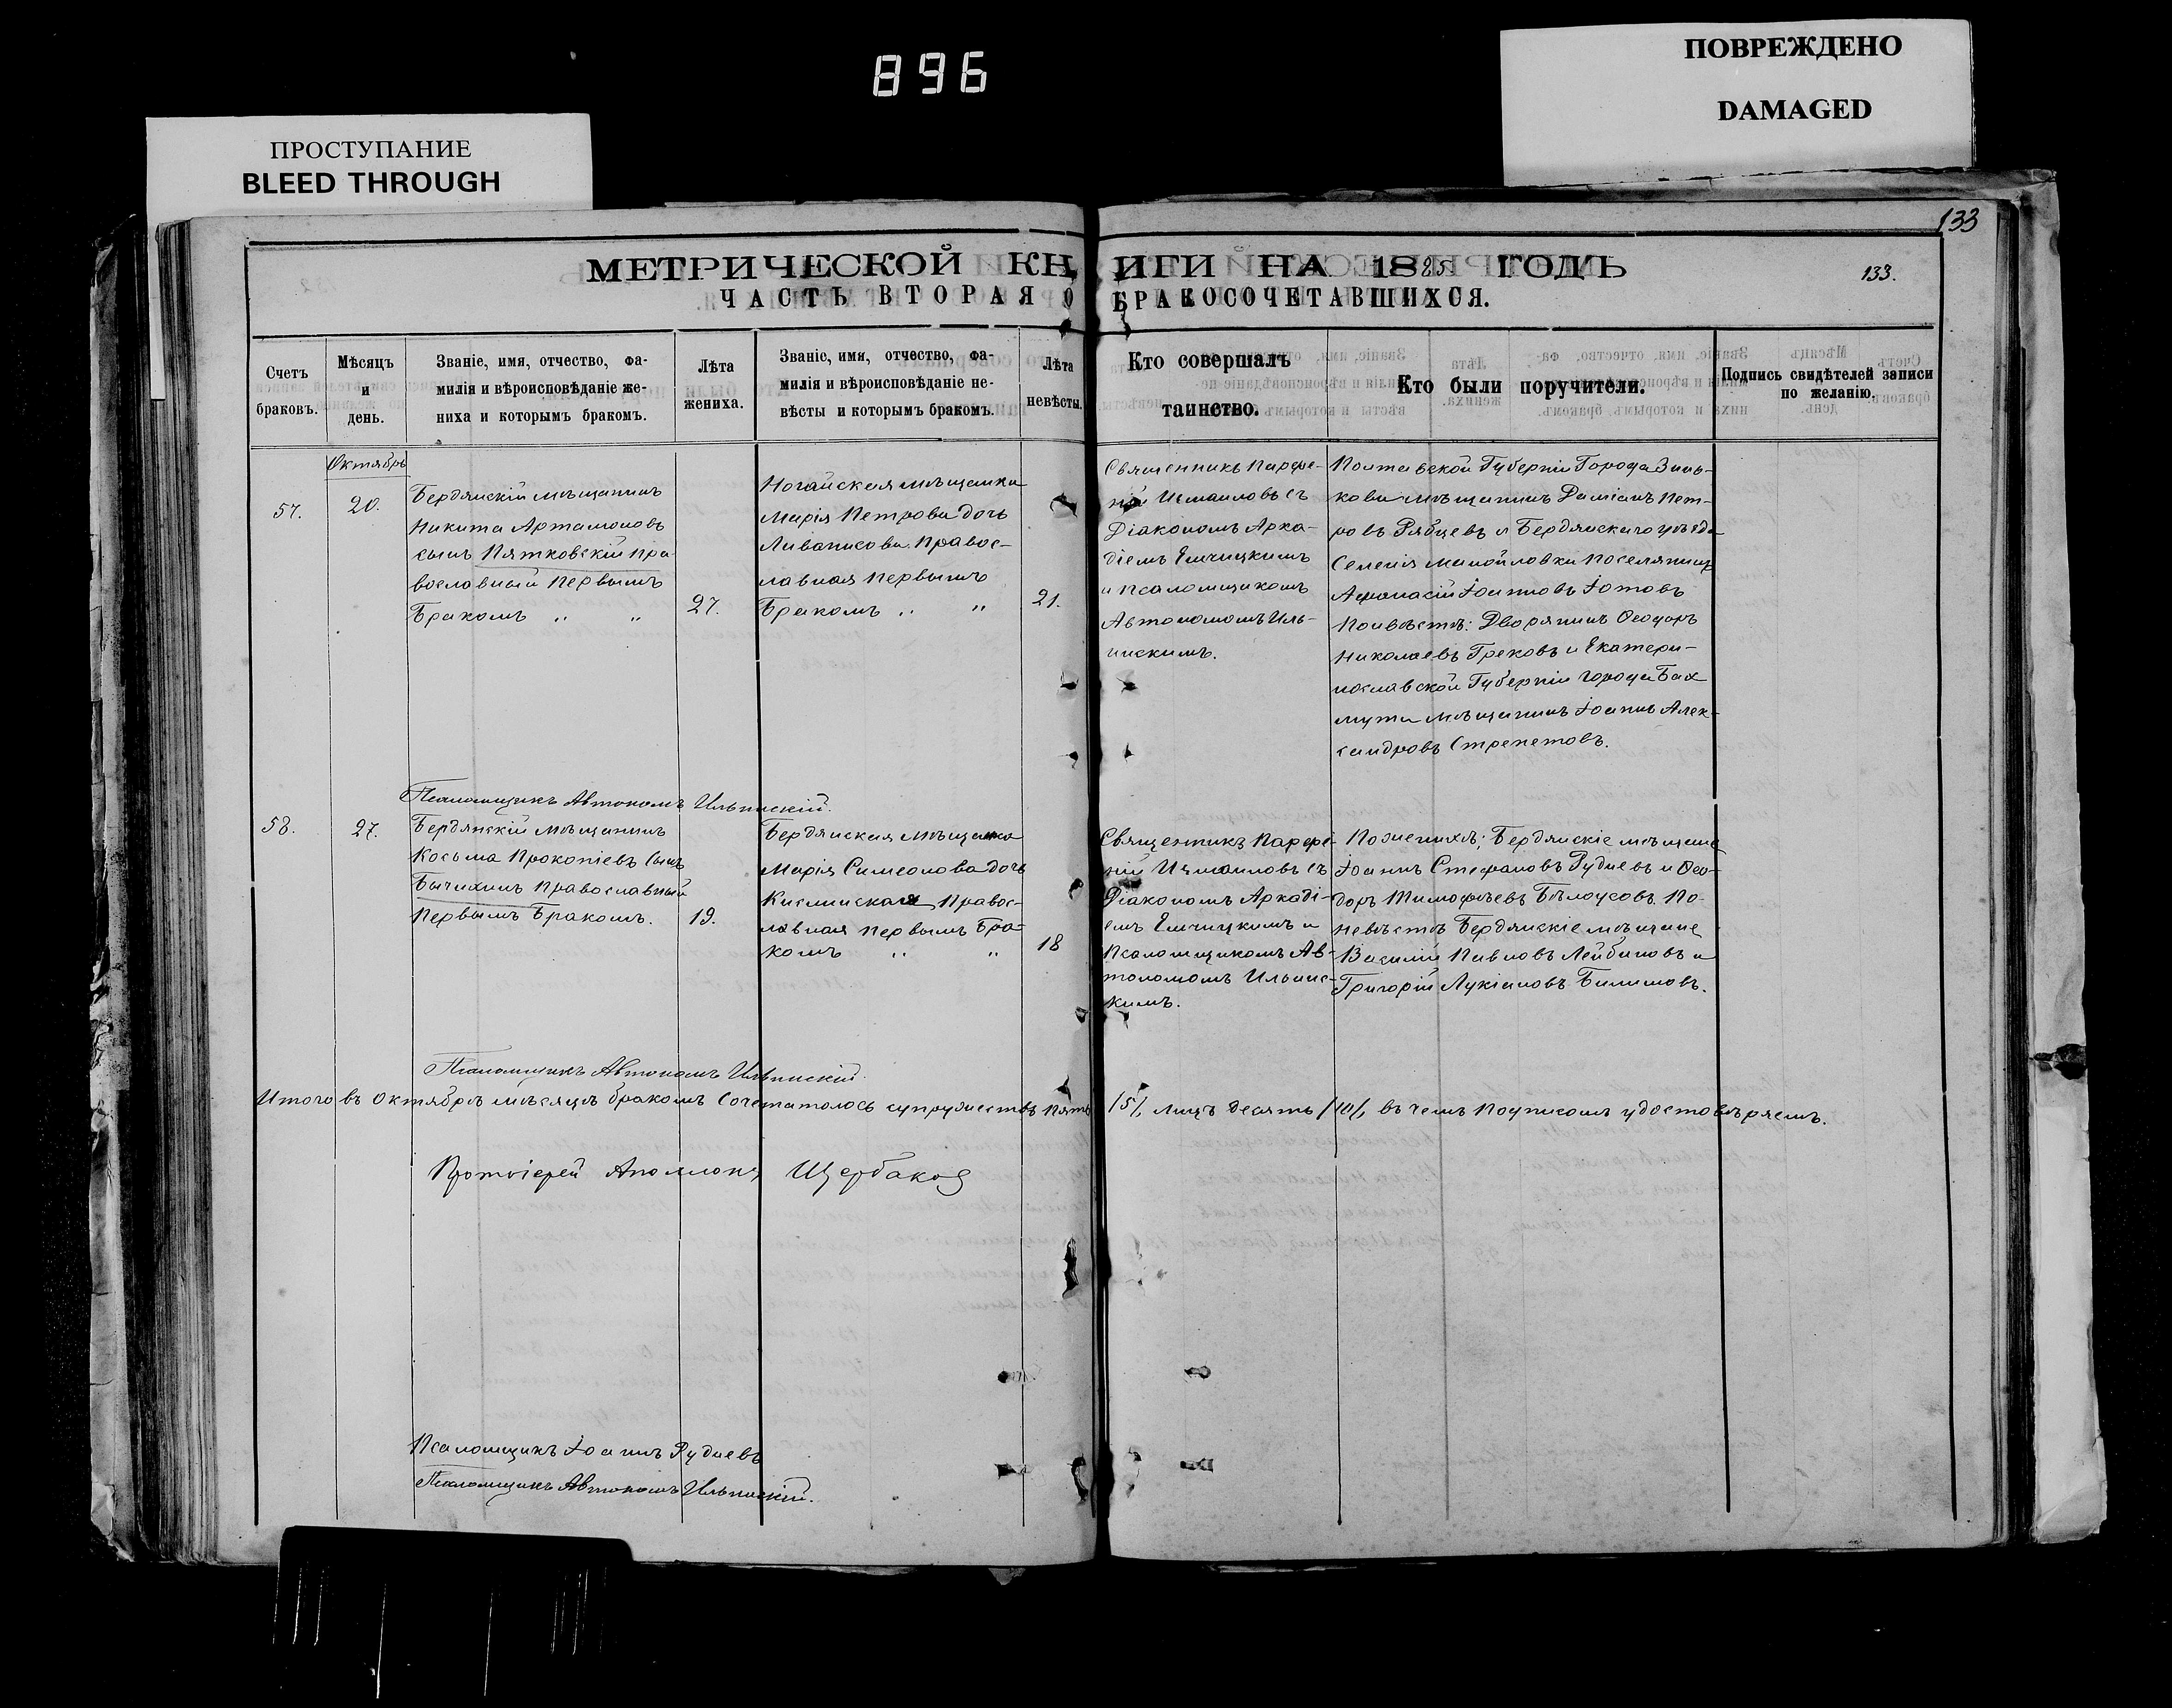 896
ПОВРЕЖДЕНО
DAMAGED
ПРОСТУПАНИЕ
BLEED THROUGH
133
МЕТРИЧЕСКОЙ КНИГИ НА 1885 ГОДЪ
133.
ЧАСТЬ ВТОРАЯ О БРАКОСОЧЕТАВШИХСЯ.
Счетъ
браковъ.
Мѣсяцъ
и
день.
Званіе, имя, отчество, фа-
милія и вѣроисповѣданіе же-
ниха и которымъ бракомъ.
Лѣта
жениха.
Званіе, имя, отчество, фа-
милія и вѣроисповѣданіе не-
вѣсты и которымъ бракомъ.
Лѣта
невѣсты.
Кто совершалъ
таинство.
Кто были поручители.
Подпись свидѣтелей записи
по желанію.
Октябрь
57.
20.
Бердянскій мѣщанинъ
Никита Артамоновъ
сынъ Пятковскій пра-
вославный первымъ
Бракомъ " "
27.
Ногайская мѣщанка
Марія Петрова дочь
Ливанисова Правос-
лавная первымъ
Бракомъ " "
21.
Священникъ Парфе-
ній Исмаиловъ съ
Діакономъ Арка-
діемъ Емчицкимъ
и псаломщикомъ
Автономомъ Иль-
инскимъ.
Полтавской Губерніи Города Зинь-
кова мѣщанинъ Даміанъ Пет-
ровъ Рябцевъ и Бердянскаго уѣзда
Селенія Манойловки Поселянинъ
Афонасій Іоанновъ Іотовъ
По невѣстѣ: Дворянинъ Ѳеодоръ
Николаевъ Грековъ и Екатери-
нославской Губерніи города Бах
мута мѣщанинъ Іоаннъ Алек-
сандровъ Стрепетовъ.
Псаломщикъ Автономъ Ильинскій.
58.
27.
Бердянскій мѣщанинъ
Косьма Прокопіевъ сынъ
Бычихинъ Православный
Первымъ Бракомъ.
19.
Бердянская мѣщанка
Марія Симеонова дочь
Кислинская Правос-
лавная первымъ Бра-
комъ " "
18
Священникъ Парфе-
ній Исмаиловъ съ
Діакономъ Аркаді-
емъ Емчицкимъ и
Псаломщикомъ Ав-
тономомъ Ильинс-
кимъ.
По женихѣ; Бердянскіе мѣщане
Іоаннъ Стефановъ Рудиевъ и Ѳео-
доръ Тимофѣевъ Бѣлоусовъ По
невѣстѣ Бердянскіе мѣщане
Василій Павловъ Лейбиновъ и
Григорій Лукіановъ Билимовъ.
Псаломщикъ Автономъ Ильинскій.
Итого въ Октябрѣ мѣсяцѣ бракомъ сочеталось супружествъ пять /5/, лицъ десять /10/, въ чемъ подписомъ удостовѣряемъ.
Протоіерей Аполлонъ Щербаков
Псаломщикъ Іоаннъ Рудиевъ
Псаломщикъ Автономъ Ильинскій.